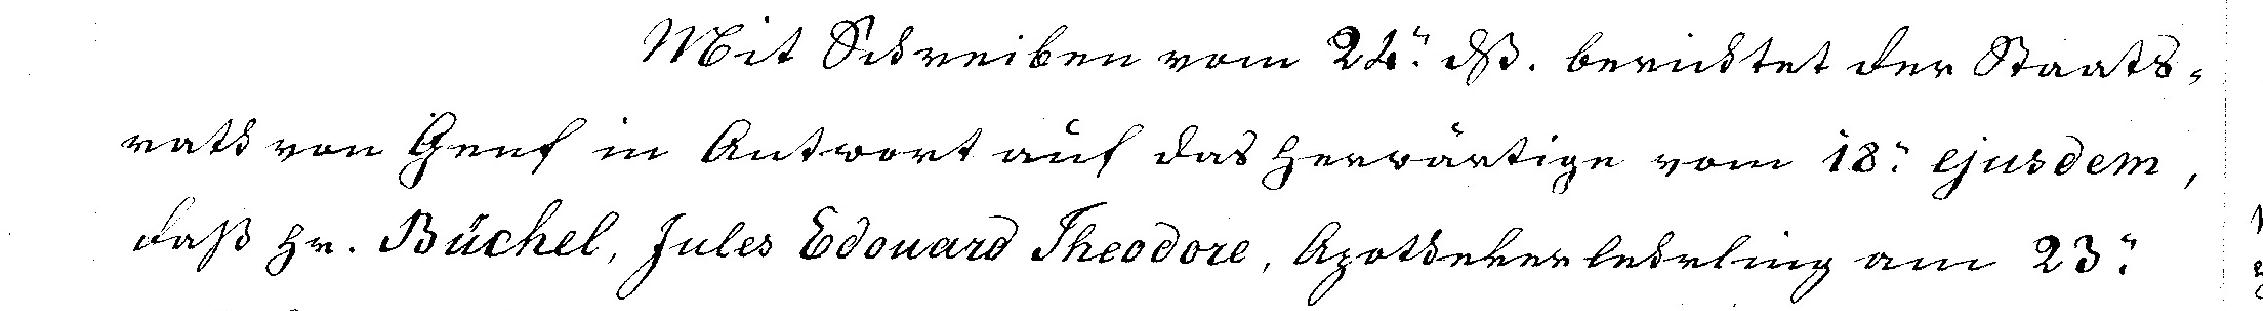 Mit Schreiben vom 24.̈ dß. berichtet der Staats-
rath von Genf in Antwort auf das herwärtige vom 18.̈ ejusdem,
daß Hr. Büchel, Jules Edouard Theodore, Apothekerlehrling am 23.̈